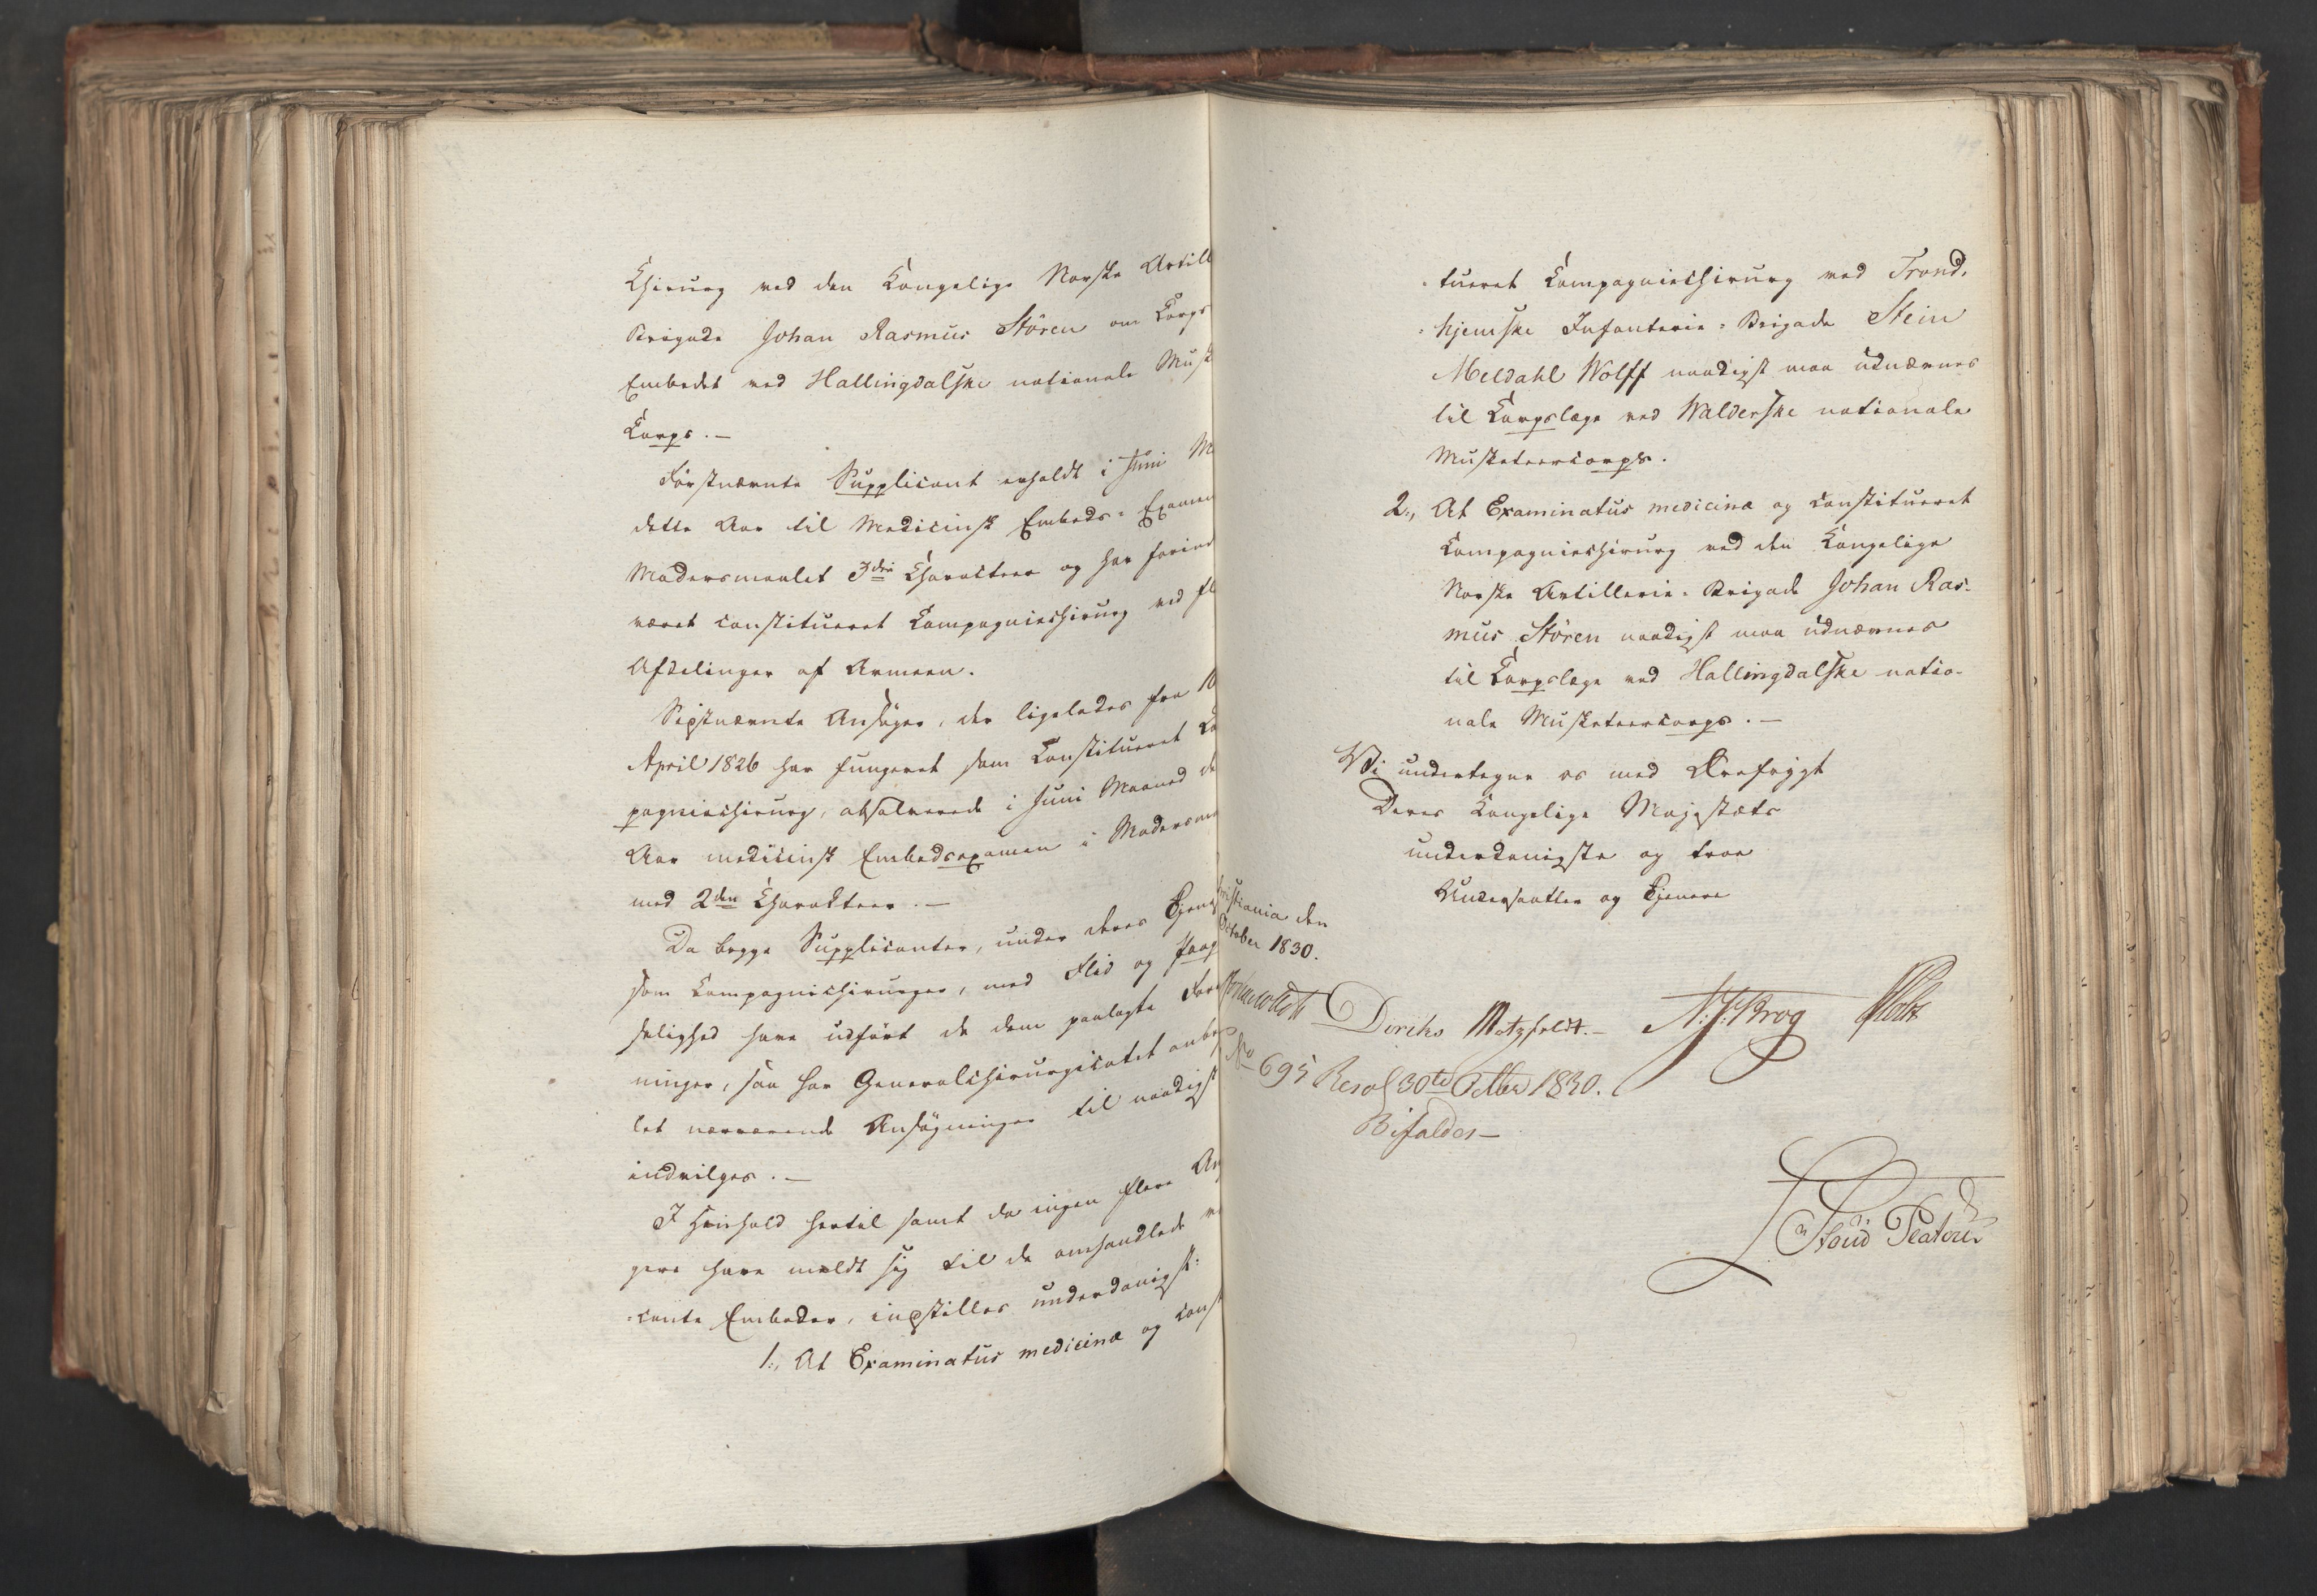 Chirurg ved den Kongelige Norske Artill
Brigade Johan Rasmus Stören om Corps
Embedet ved Hallingdalske nationale Musk
Corps.—
Førstnævnte Supplicant erholdt i Juni M
dette Aar til Medicinsk Embeds-Examen
Modersmaalet 3die Charakteer og har forind
været constitueret Compagniechirurg ved fl
Afdelinger af Armeen.
Sidstnævnte Ansøger, der ligeledes fra 10
April 1826 har fungeret som Constitueret Co
pagniechirurg, absolverede i Juni Maaned d
Aar medicinsk Embedsexamen i Modersma
med 2den Charakteer.—
Da begge Supplicanter, under deres Tjenes
som Compagnichirurger, med Flid og
selighed have udført de dem paalagte For
ninger, saa har Generalchirurgicatet anbe
let nærværende Ansøgninger til naadigst
indvilges.—
I Henhold hertil samt da ingen flere An
gere have meldt sig til de omhandlede va
-cante Embeder, indstilles underdanigst:
1., At Examinatus medicinæ og const
-tueret Compagniechirurg ved Trond-
-hjemske Infanterie-Brigade Stein
Meldahl Wolff naadigst maa udnævnes
til Corpslæge ved Walderske nationale
Musketeercorps.
2., At Examinatus medicinæ og constitueret
Compagniechirurg ved den Kongelige
Norske Artillerie-Brigade Johan Ras-
mus Stören naadigst maa udnævnes
til Corpslæge ved Hallingdalske natio-
nale Musketeercorps.—
Vi undertegne os med Ærefrygt
Deres Kongelige Majestæts
underdanigste og troe
Undersaatter og Tjenere
ristiania den
October 1830.
Diriks Motzfeldt.— N. J. Krog
No 695 Resol 30te Octbr 1830.
Bifaldes—